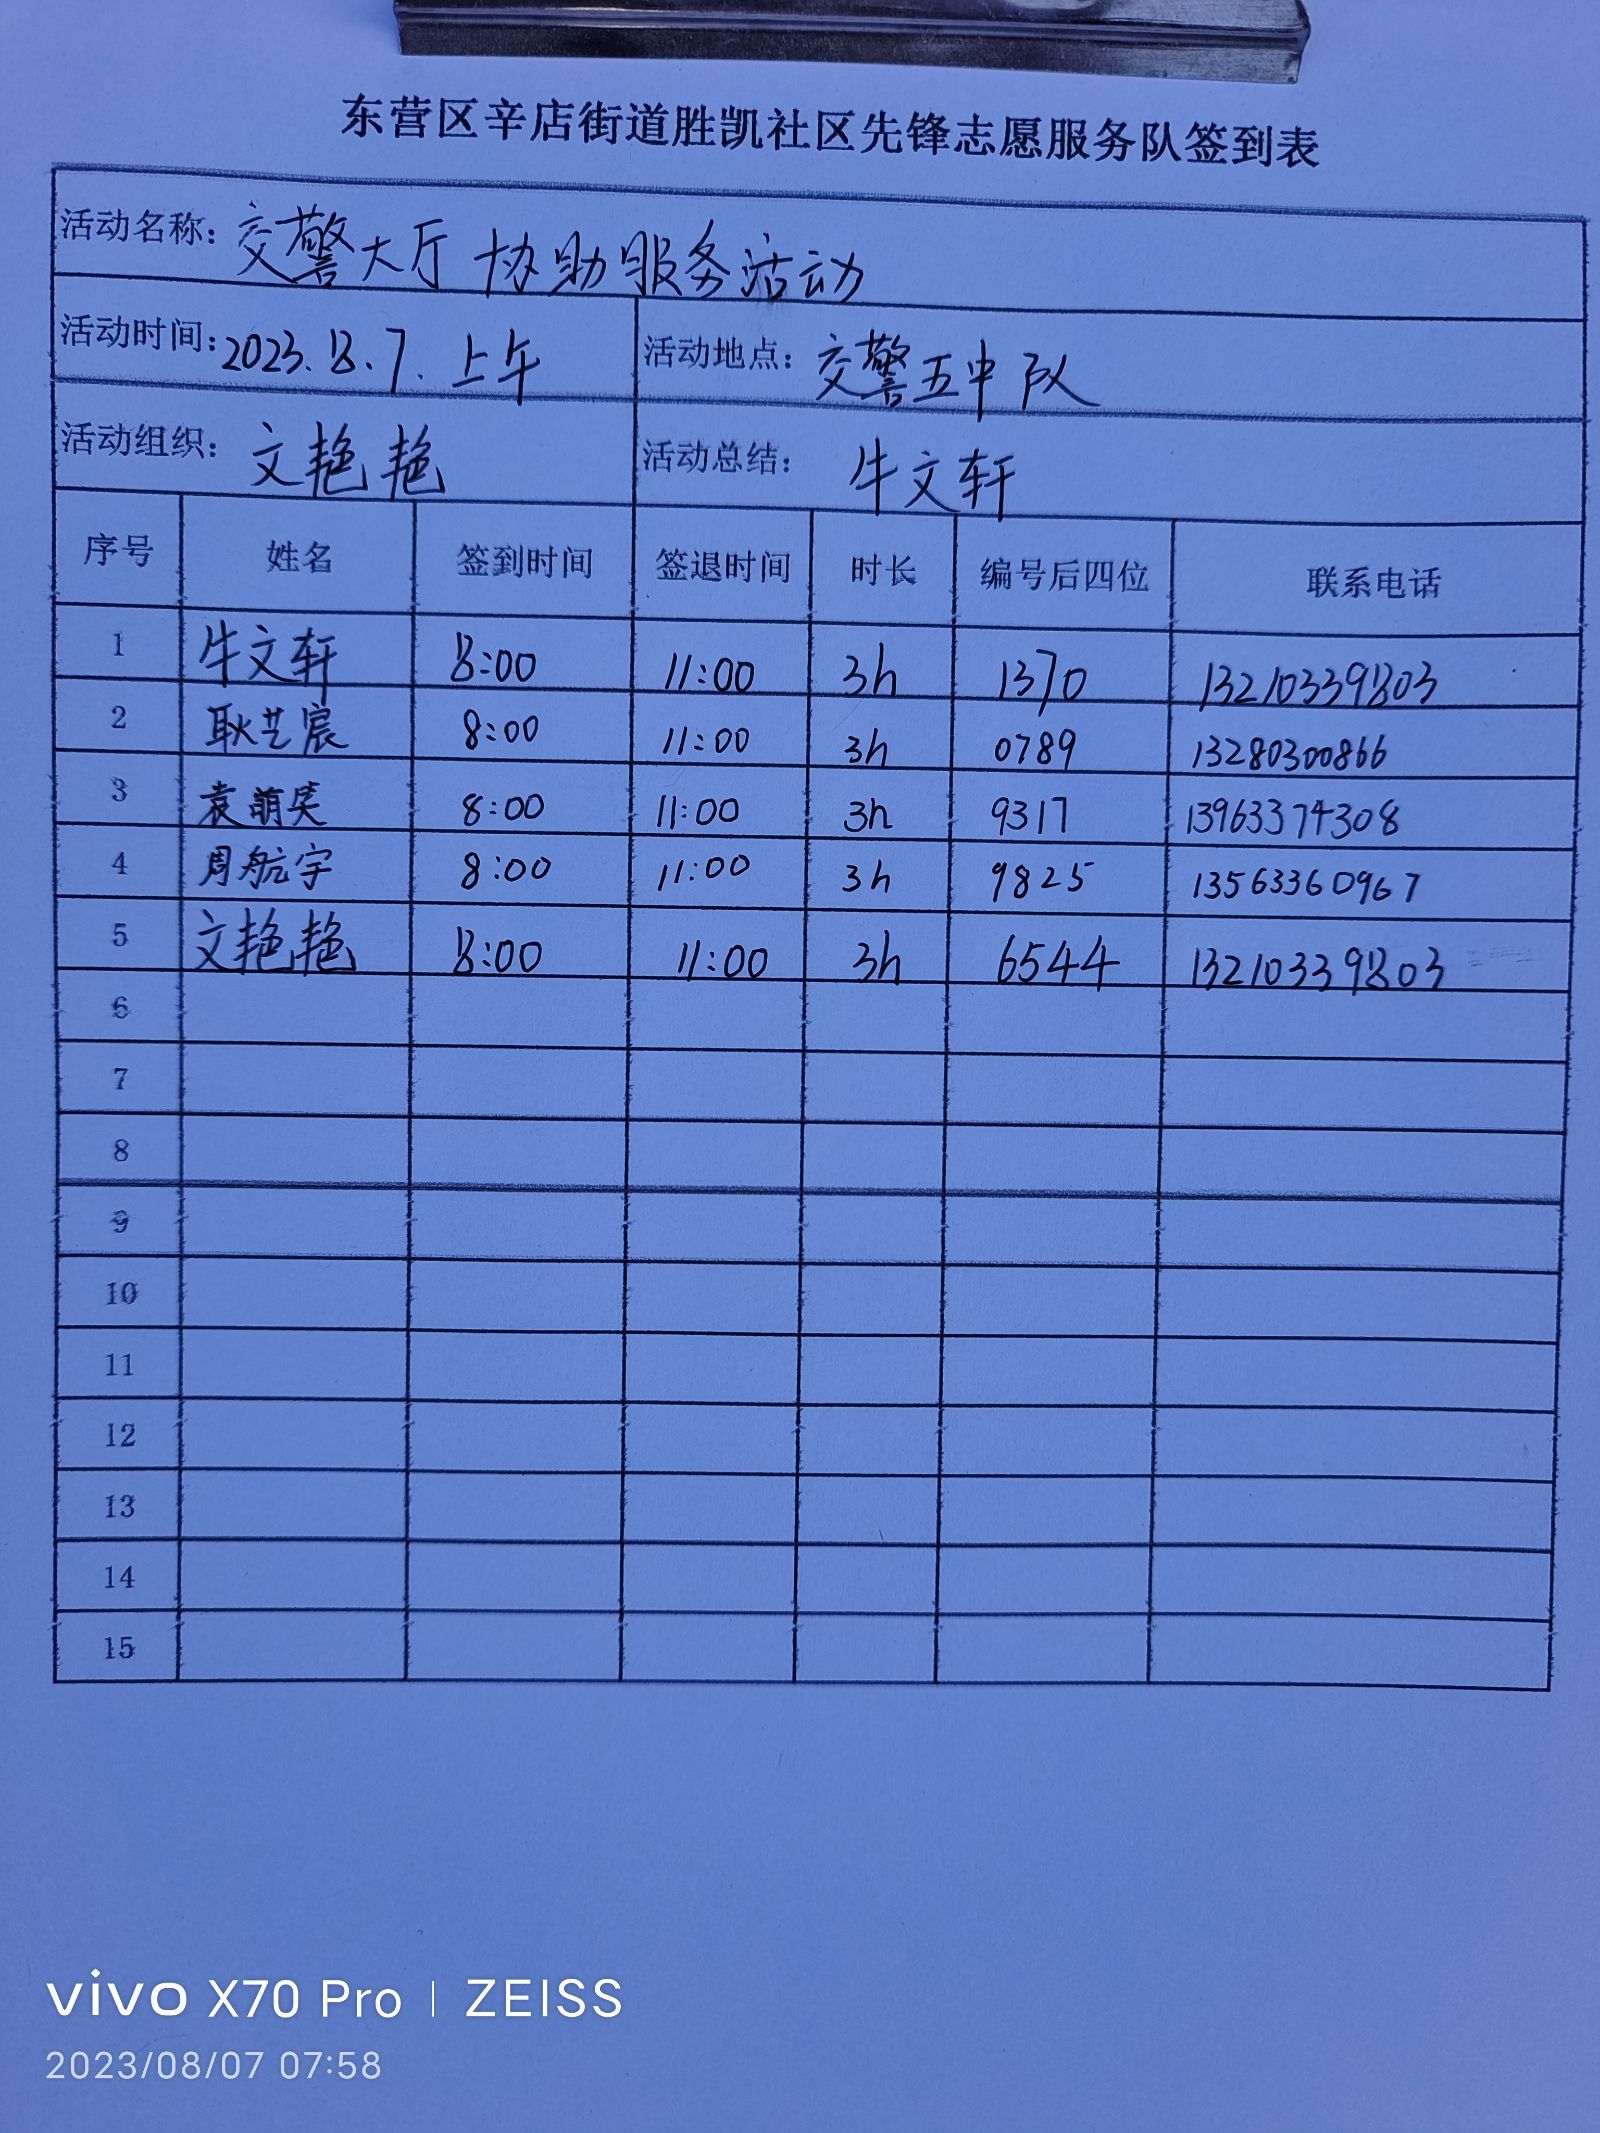 东营区辛店街道胜凯社区先锋志愿服务队签到表
活动名称: 交警大厅协助服务活动
活动时间: 2023.8.7.上午 活动地点: 交警五中队
活动组织: 文艳艳 活动总结: 牛文轩
序号 姓名 签到时间 签退时间 时长 编号后四位 联系电话
1 牛文轩 8:00 11:00 3h 1370 13210339803
2 耿艺宸 8:00 11:00 3h 0789 13280300866
3 袁萌笑 8:00 11:00 3h 9317 13963374308
4 周航宇 8:00 11:00 3h 9825 13563360967
5 文艳艳 8:00 11:00 3h 6544 13210339803
6
7
8
9
10
11
12
13
14
15
vivo X70 Pro | ZEISS
2023/08/07 07:58